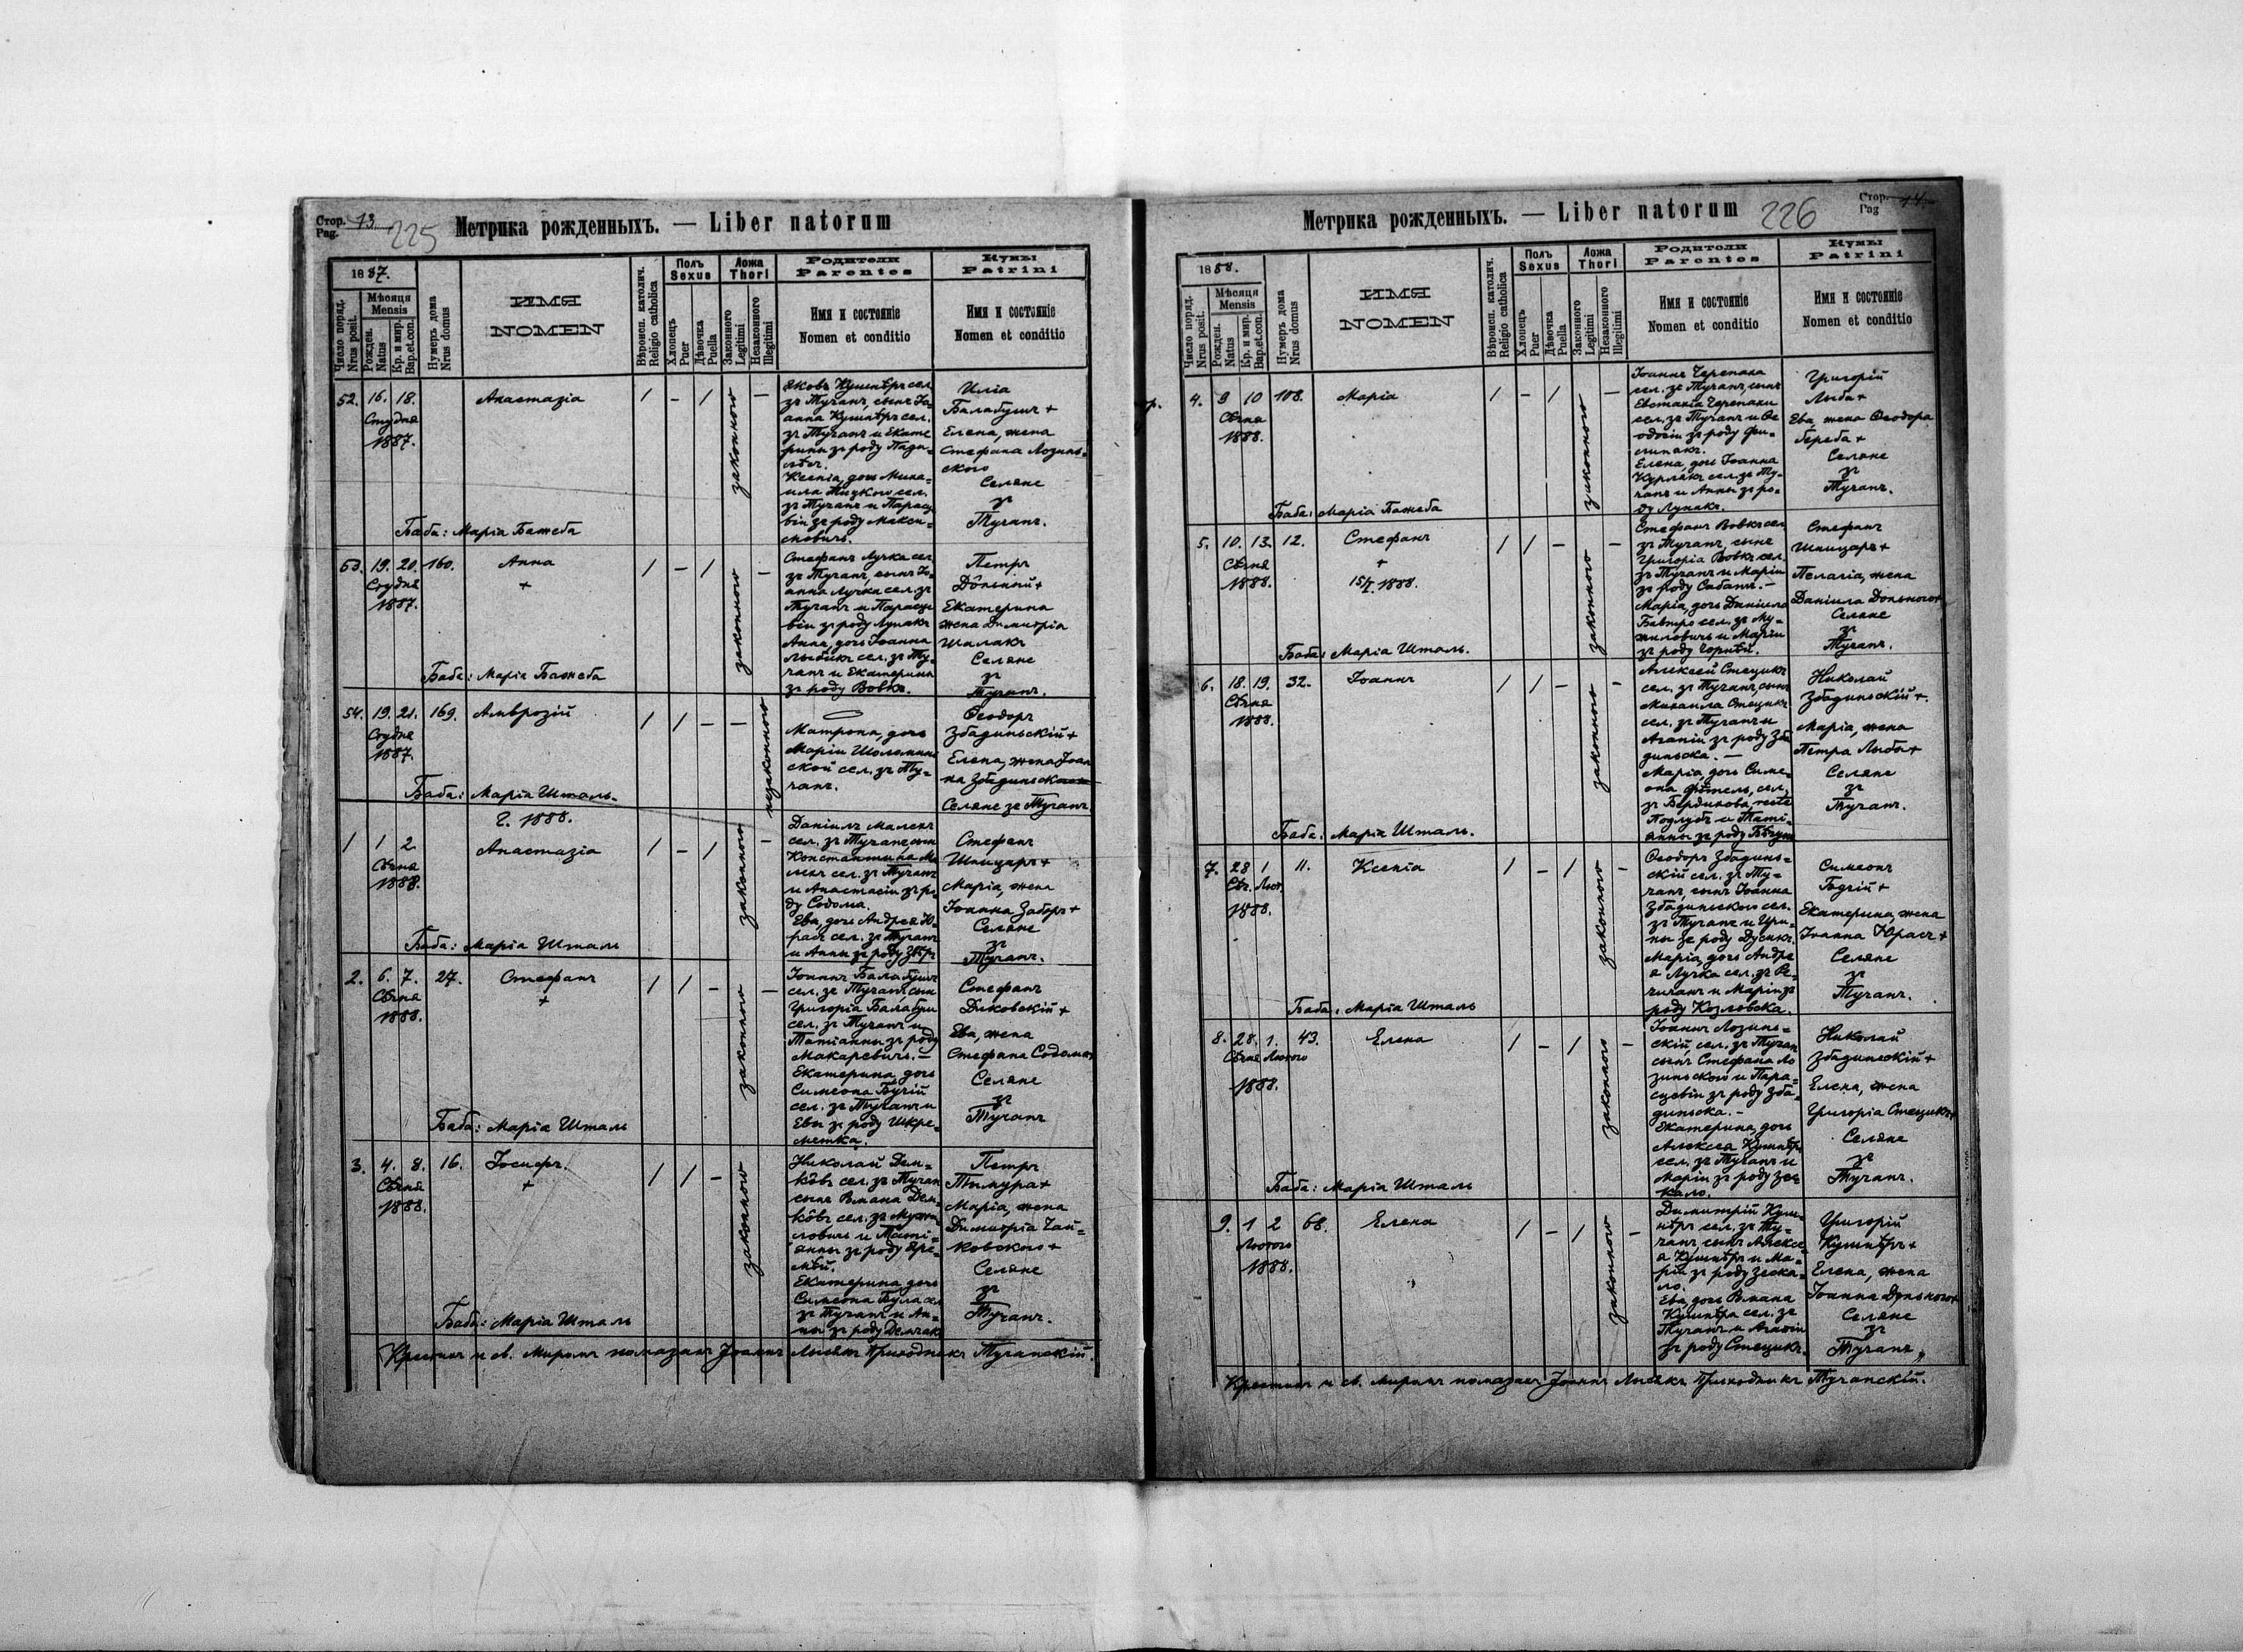 Стор. 13.
Pag.
225
Метрика рожденныхъ. — Liber natorum
1887.
Число поряд.
Nrus posit.
Мѣсяця
Mensis
Рожден.
Natus
Кр. и мир.
Bap.et.con.
Нумеръ дома
Nrus domus
ИМЯ
NOMEN
Вѣроисп. католич.
Religio catholica
Полъ
Sexus
Хлопецъ
Puer
Дѣвочка
Puella
Ложа
Thori
Законного
Legitimi
Незаконного
Illegitimi
Родители
Parentes
Имя и состояніе
Nomen et conditio
Кумы
Patrini
Имя и состояніе
Nomen et conditio
52. 16. 18.
Студня
1887.
Анастазія
/ - / законного —
Яковъ Кушнѣръ сел.
зъ Тучапъ, сынъ Іо-
анна Кушнѣръ сел.
зъ Тучапъ и Екате
рины зъ роду
Ксенія, дочь Миха-
ила сел.
зъ Тучапъ и Параск
віи зъ роду Макси-
мовичъ.
Илія
Балабушъ +
Елена, жена
Стефана Лозинь-
ского
Селяне
зъ
Тучапъ.
Баба: Марія Бажеба
53. 19. 20. 160.
Студня
1887.
Анна
+
/ - / законного —
Стефанъ Лучка сел
зъ Тучапъ, сынъ Іо-
анна Лучка сел. зъ
Тучапъ и Параске
віи зъ роду Лупакъ
Анна, дочь Іоанна
Лыбикъ сел. зъ Ту-
чапъ и Екатерины
зъ роду Вовкъ.
Петръ
Допьпый +
Екатерина
жена Димитрія
Шалакъ
Селяне
зъ
Тучапъ.
Баба: Марія Бажеба
54. 19. 21. 169.
Студня
1887.
Амврозій
/ / - — незаконного
Матрона, дочь
Маріи Шоломин
ской сел. зъ Ту-
чапъ.
Ѳеодоръ
Збадиньскій +
Елена, жена Іоан
на Збадиньского
Селяне зъ Тучапъ
Баба: Марія Шталь.
Р. 1888.
1 1 2
Сѣчня
1888.
Анастазія
/ - / законного —
Даніилъ Малекъ
сел. зъ Тучапъ, сын
Константина Ма
лекъ сел. зъ Тучапъ
и Анастасіи зъ ро
ду Содома.
Ева, дочь Андрея Ю-
расъ сел. зъ Тучапъ
и Анны зъ роду
Стефанъ
Шпицаръ +
Марія, жена
Іоанна Заборъ +
Селяне
зъ
Тучапъ.
Баба: Марія Шталь
2. 6. 7. 27.
Сѣчня
1888.
Стефанъ
+
/ / - законного —
Іоаннъ Балабушъ
сел. зъ Тучапъ, сын
Григорія Балабуш
сел. зъ Тучапъ и
Татіанны зъ роду
Макаревичъ. —
Екатерина, дочь
Симеона Бучій
сел. зъ Тучапъ и
Евы зъ роду Шкре-
метка.
Стефанъ
Диковскій +
Ева, жена
Стефана Содома
Селяне
зъ
Тучапъ
Баба: Марія Шталь
3. 4. 8. 16.
Сѣчня
1888.
Іосифъ.
+
/ / - законного
Николай Дем-
кôвъ сел. зъ Тучап
сынъ Романа Дем-
кôвъ сел. зъ Мужи-
ловичъ и Таті-
янны зъ роду Яре-
мѣй.
Екатерина дочь
Симеона Була сел
зъ Тучапъ и Ан-
ны зъ роду Демчак
Петръ
Тимура +
Марія, жена
Димитрія Чай-
ковского +
Селяне
зъ
Тучапъ.
Баба: Марія Шталь
Крестилъ и св. миромъ помазалъ Іоаннъ Лысякъ Приходникъ Тучапскій.
Метрика рожденныхъ. — Liber natorum
226
Стор. 14
Pag
1888.
Число поряд.
Nrus posit.
Мѣсяця
Mensis
Рожден.
Natus
Кр. и мир.
Bap.et.con.
Нумеръ дома
Nrus domus
ИМЯ
NOMEN
Вѣроисп. католич.
Religio catholica
Полъ
Sexus
Хлопецъ
Puer
Дѣвочка
Puella
Ложа
Thori
Законного
Legitimi
Незаконного
Illegitimi
Родители
Parentes
Имя и состояніе
Nomen et conditio
Кумы
Patrini
Имя и состояніе
Nomen et conditio
4. 9 10 108.
Сѣчня
1888.
Марія
/ - / законного —
Іоаннъ Черепаха
сел. зъ Тучапъ, сынъ
Евстахія Черепахи
сел. зъ Тучапъ и Ѳе
одосіи зъ роду Фи-
липакъ.
Елена, дочь Іоанна
Курлякъ сел. зъ Ту-
чапъ и Анны зъ ро-
ду Лупакъ.
Григорій
Лыба +
Ева, жена Ѳеодора
береба +
Селяне
зъ
Тучапъ.
Баба: Марія Бажеба
5. 10. 13. 12.
Сѣчня
1888.
Стефанъ
+
15/I 1888.
/ / - законного —
Стефанъ Вовкъ сел
зъ Тучапъ, сынъ
Григорія Вовкъ сел.
зъ Тучапъ и Маріи
зъ роду Сабатъ. —
Марія, дочь Даніила
Бавтро сел. зъ Му-
жиловичъ и Маріи
зъ роду Чорнѣй.
Стефанъ
Шпицаръ +
Пелагія, жена
Даніила Допьного +
Селяне
зъ
Тучапъ.
Баба: Марія Шталь.
6. 18. 19. 32.
Сѣчня
1888.
Іоаннъ
/ / - законного -
Алексей Стецикъ
сел. зъ Тучапъ, сынъ
Михаила Стецикъ
сел. зъ Тучапъ и
Агапіи зъ роду Зба
диньска. —
Марія, дочь Симе-
она сел.
зъ Бердихова, recte
Подлубъ и Таті-
янны зъ роду
Николай
Збадиньскій +.
Марія, жена
Петра Лыба +
Селяне
зъ
Тучапъ.
Баба: Марія Шталь.
7. 28 1 11.
Сѣч. Лют.
1888.
Ксенія
/ - / законного -
Ѳеодоръ Збадинь-
скій сел. зъ Ту-
чапъ, сынъ Іоанна
Збадиньского сел.
зъ Тучапъ и Ири-
ны зъ роду Дусикъ.
Марія, дочь Андре
я Лучка сел. зъ Ре-
чичанъ и Маріи зъ
роду Козловска.
Симеонъ
+
Екатерина, жена
Іоанна Юрасъ +
Селяне
зъ
Тучапъ.
Баба: Марія Шталь
8. 28. 1. 43.
Сѣчня Лютого
1888.
Елена
/ - / законного —
Іоаннъ Лозинь-
скій, сел. зъ Тучап
сынъ Стефана Ло
зиньского и Пара-
сцевіи зъ роду Зба-
диньска. —
Екатерина, дочь
Алексея Кушнѣръ
сел. зъ Тучапъ и
Маріи зъ роду Зес
кало.
Николай
Збадиньскій +
Елена, жена
Григорія Стецикъ +
Селяне
зъ
Тучапъ.
Баба: Марія Шталь
9. 1 2 68.
Лютого
1888.
Елена
/ - / законного —
Димитрій Куш-
нѣръ сел. зъ Ту-
чапъ, сынъ Алексе-
я Кушнѣръ и Ма-
ріи зъ роду Зеска-
ло.
Ева, дочь Романа
Кушнѣра сел. зъ
Тучапъ и Агапіи
зъ роду Стецикъ.
Григорій
Кушнѣръ +
Елена, жена
Іоанна Допьного +
Селяне
зъ
Тучапъ.
Крестилъ и св. миромъ помазалъ Іоаннъ Лысякъ Приходникъ Тучапскій.